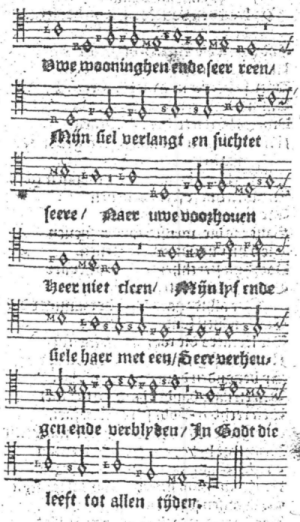 Uwe wooninghen ende seer reen/
Mijn siel verlangt en suchtet
seere / Naer uwe voorhoven
Heer niet cleen/ Mijn lyf ende
siele haer met een/ Seer verheu-
gen ende verblyden/ In Godt die
leeft tot allen tyden.